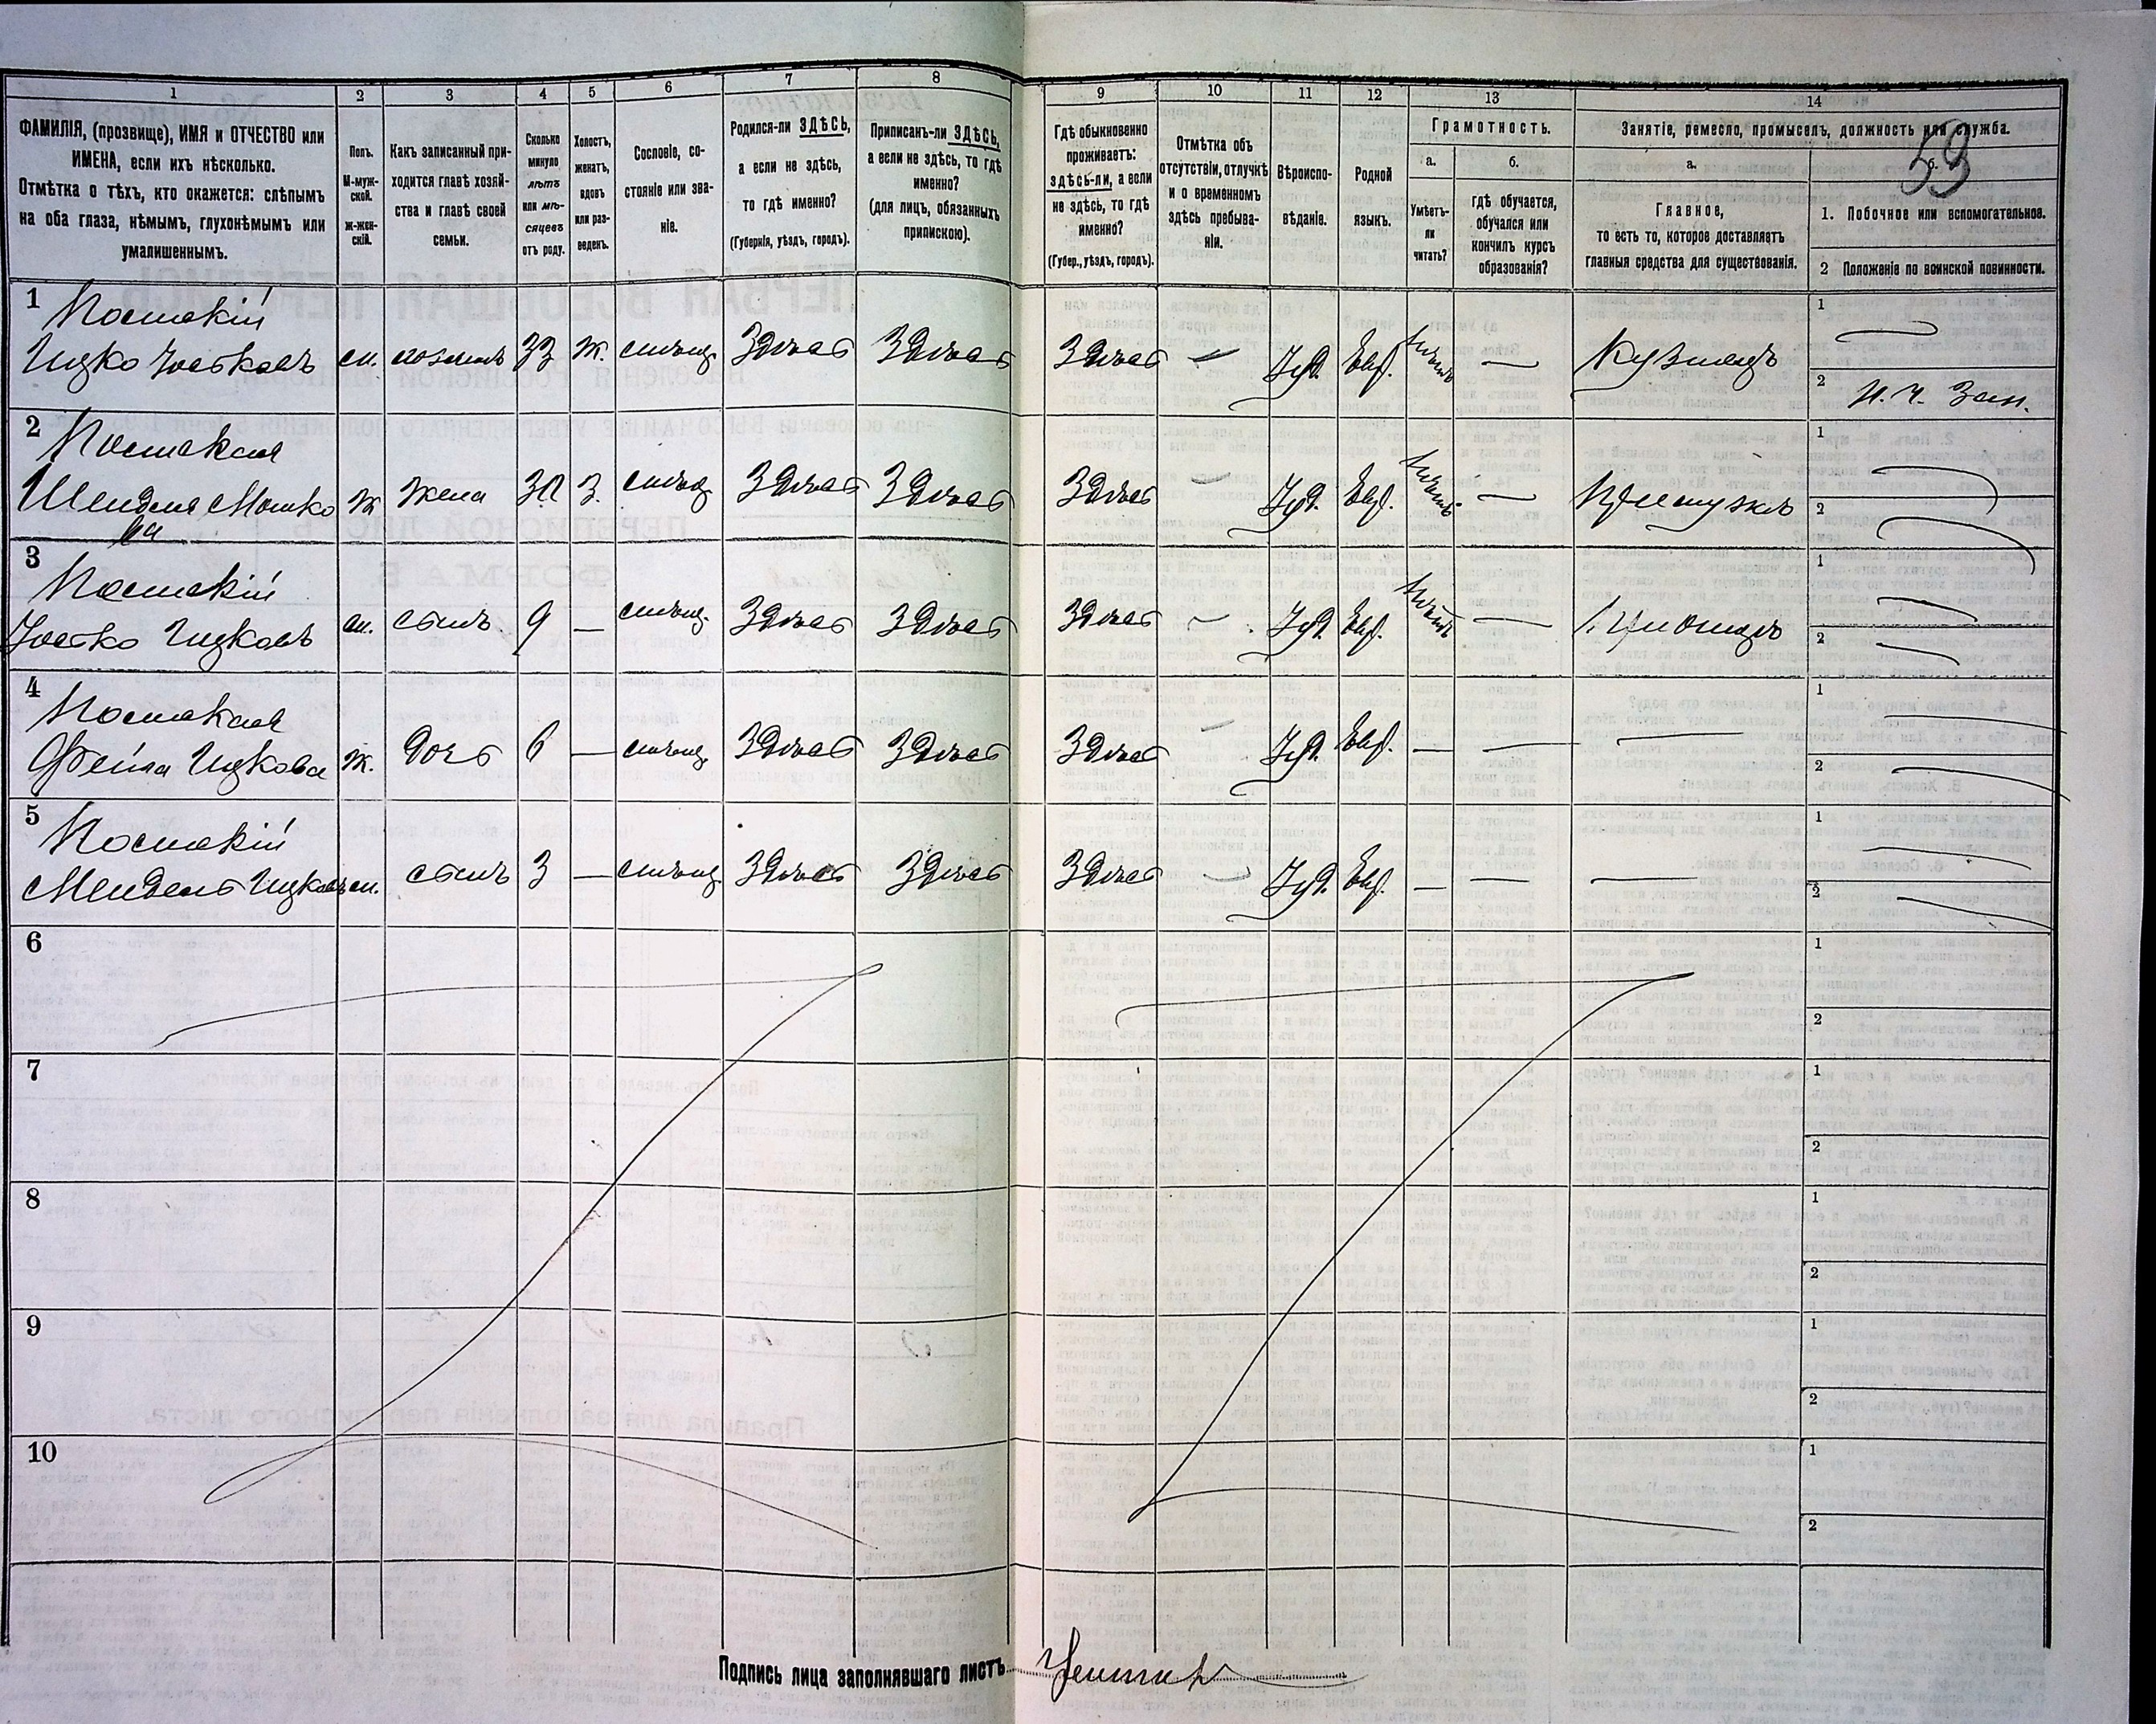 1 2 3 4 5 6 7 8 9 10 11 12 13 14
ФАМИЛІЯ, (прозвище), ИМЯ и ОТЧЕСТВО или
ИМЕНА, если ихъ нѣсколько.
Отмѣтка о тѣхъ, кто окажется: слѣпымъ
на оба глаза, нѣмымъ, глухонѣмымъ или
умалишеннымъ.
Полъ.
М-муж-
ской.
ж-жен-
скій.
Какъ записанный при-
ходится главѣ хозяй-
ства и главѣ своей
семьи.
Сколько
минуло
лѣтъ
или мѣ-
сяцевъ
отъ роду.
Холостъ,
женатъ,
вдовъ
или раз-
веденъ.
Сословіе, со-
стояніе или зва-
ніе.
Родился-ли ЗДѢСЬ,
а если не здѣсь,
то гдѣ именно?
(Губернія, уѣздъ, городъ).
Приписанъ-ли ЗДѢСЬ,
а если не здѣсь, то гдѣ
именно?
(для лицъ, обязанныхъ
припискою).
Гдѣ обыкновенно
проживаетъ:
здѣсь-ли, а если
не здѣсь, то гдѣ
именно?
(Губер., уѣздъ, городъ).
Отмѣтка объ
отсутствіи, отлучкѣ
и о временномъ
здѣсь пребыва-
ніи.
Вѣроиспо-
вѣданіе.
Родной
языкъ.
Грамотность.
а.
Умѣетъ-
ли
читать?
б.
гдѣ обучается,
обучался или
кончилъ курсъ
образованія?
Занятіе, ремесло, промыселъ, должность или служба.
53
а.
Главное,
то есть то, которое доставляетъ
главныя средства для существованія.
б.
1. Побочное или вспомогательное.
2 Положеніе по воинской повинности.
1
Ицко м. хозяинъ 33 ж. мѣщ. Здѣсь Здѣсь Здѣсь — Іуд. Евр. — Кузнецъ
1
2
2
ж жена 3. мѣщ. Здѣсь Здѣсь Здѣсь — Іуд. Евр. —
1
2
3
Ицковъ м. сынъ 9 — мѣщ. Здѣсь Здѣсь Здѣсь — Іуд. Евр. —
1
2
4
Ицкова ж. дочь 6 — мѣщ. Здѣсь Здѣсь Здѣсь — Іуд. Евр. — — —
1
2
5
Мендель Ицковъ м. сынъ 3 — мѣщ. Здѣсь Здѣсь Здѣсь — Іуд. Евр. — — —
1
2
6
1
2
7
1
2
8
1
2
9
1
2
10
1
2
Подпись лица заполнявшаго листъ